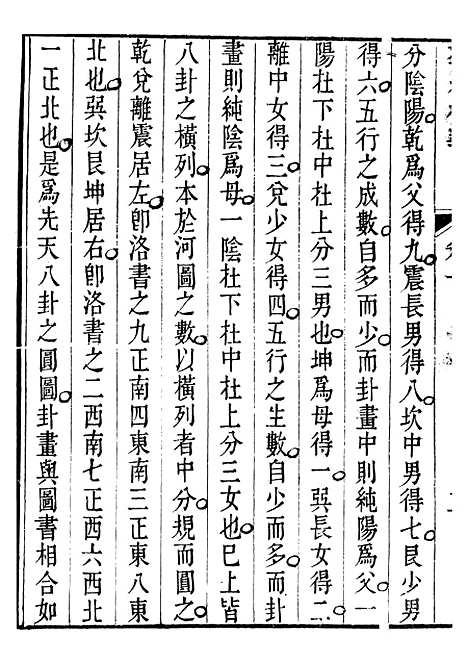 分陰陽。乾爲父得九。震長男得八。坎中男得七。艮少男
得六。五行之成數。自多而少。而卦畫中則純陽爲父。一
陽杜下杜中杜上分三男也。坤爲母得一。巽長女得二。
離中女得三。兌少女得四。五行之生數。自少而多。而卦
畫則純陰爲母。一陰杜下杜中杜上分三女也。巳上皆
八卦之橫列。本於河圖之數。以橫列者中分。規而圓之。
乾兌離震居左。卽洛書之九正南四東南三正東八東
北也。巽坎艮坤居右。卽洛書之二西南七正西六西北
一正北也。是爲先天八卦之圓圖。卦畫與圖書相合如